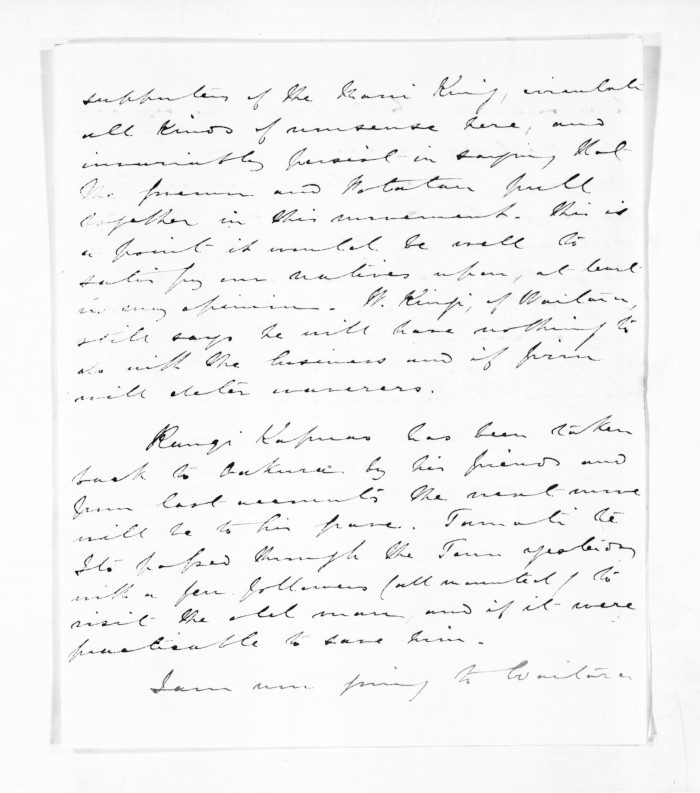 supporters of the Maori King, circulate
all kinds of nonsense here, and
invariably persist in saying that
the Governor and Potatau pull
together in this movement. This is
a point it would be well to
satisfy our natives upon, at least
in my opinion. W. Kingi, of Waitara,
still says he will have nothing to
do with the business and if firm
will deter waverers.
Rangi has been taken
back to Oakura by his friends and
from last accounts the next move
will be to his grave. Tamati te
Ito passed through the Town yesterday
with a few followers (all mounted) to
visit the old man, and if it were
practicable to save him.
I am now going to Waitara